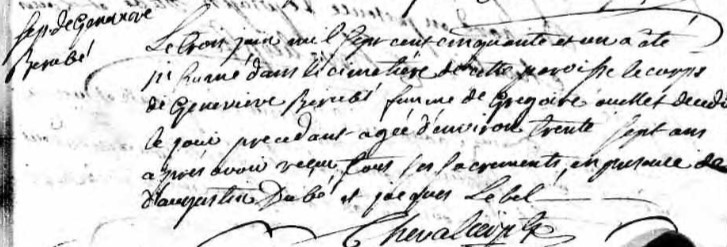 Sep. de Genevieve
Berubé
Le trois juin mil sept cent cinquante et un a été
inhumé dans le cimetière de cette paroisse le corps
de Genevieve Berubé femme de Gregoire ouellet decedé
le jour precedant agée d'environ trente sept ans
après avoir reçu tous ses sacrements, en presence de
d'augustin Dubé et jacques Lebel